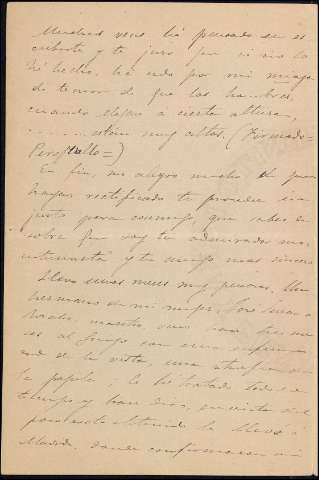 Muchas veces he pensado en es
cribirte y te juro que si no lo
he hecho, ha sido por mi miaja
de temor de que los hombres,
cuando llegan a cierta altura,
........ estan muy altos. (Firmado=
Perogrullo=)
En fin, me alegro mucho de que
hayas rectificado tu proceder in
justo para conmigo, que sabes de
sobra que soy tu admirador mas
entusiasta y tu amigo mas sincero
Llevo unos meses muy penosos. Un
hermano de mi mujer,
maestro, vino hace tres me
ses al
dad de la vista, una atrofia de
la papila; le he tratado todo este
tiempo y
poco exito obtenido le llevé a
Madrid, donde confirmaron mi